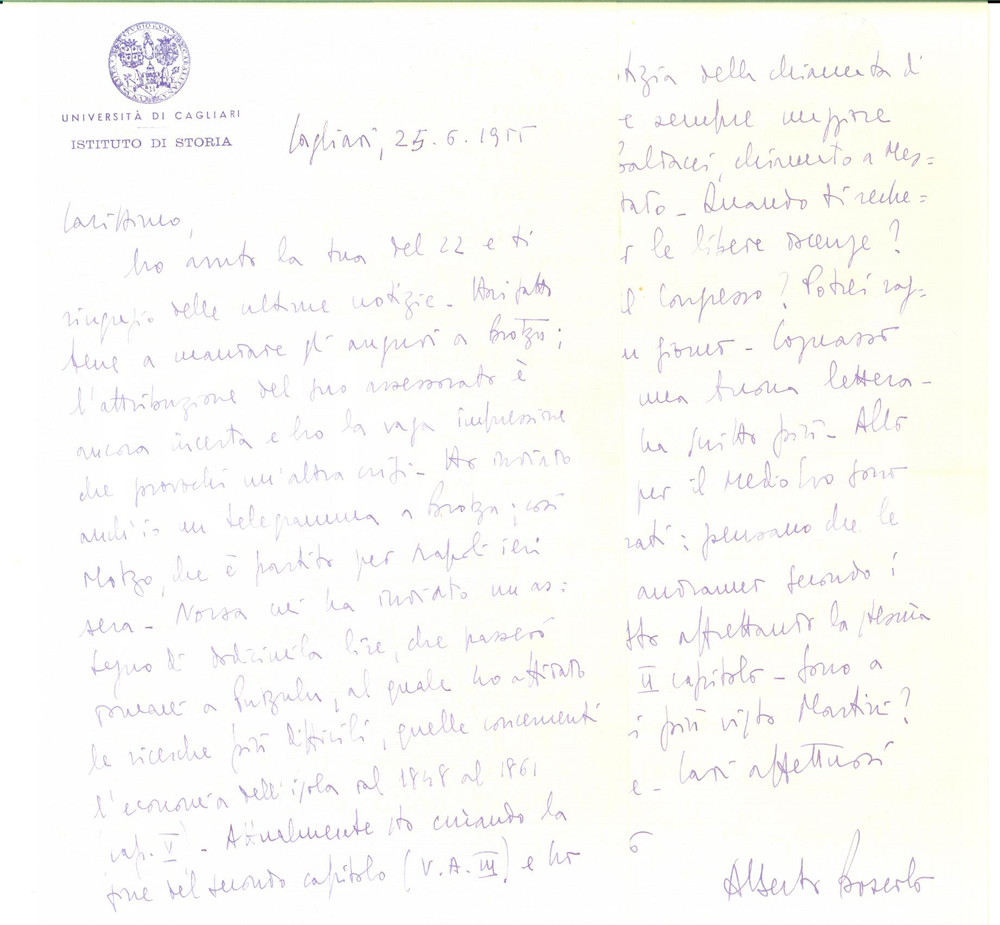 UNIVERSITÀ DI CAGLIARI
ISTITUTO DI STORIA
Cagliari, 25.6.1955
Carissimo,
ho avuto la tua del 22 e ti
ringrazio delle ultime notizie - Hai fatto
bene a mandare gli auguri a Brotzu;
l'attribuzione del suo assessorato è
ancora incerta e ho la vaga impressione
che provochi un'altra crisi - Ho inviato
anch'io un telegramma a Brotzu; così
Motzo, che è partito per Napoli ieri
sera - Norsa mi ha inviato un as=
segno di dodicimila lire, che passerò
a Putzulu, al quale ho affidato
le ricerche più difficili, quelle concernenti
l'economia dell'isola dal 1848 al 1861
cap. V - Attualmente sto curando la
fine del secondo capitolo (V.A.III) e ho
tizia della chiamata di
e sempre
Baldacci, chiamato a Mes=
Quando ti reche=
r le libere docenze?
il Congresso? Potrei rag=
n giorno - Cognasso
una buona lettera -
ha scritto più - Allo
per il Medio Evo sono
rati: pensano che le
andranno secondo i
sto affrettando la
II capitolo - Sono a
i più visto Martini?
e - Cari affettuosi
Alberto Boscolo